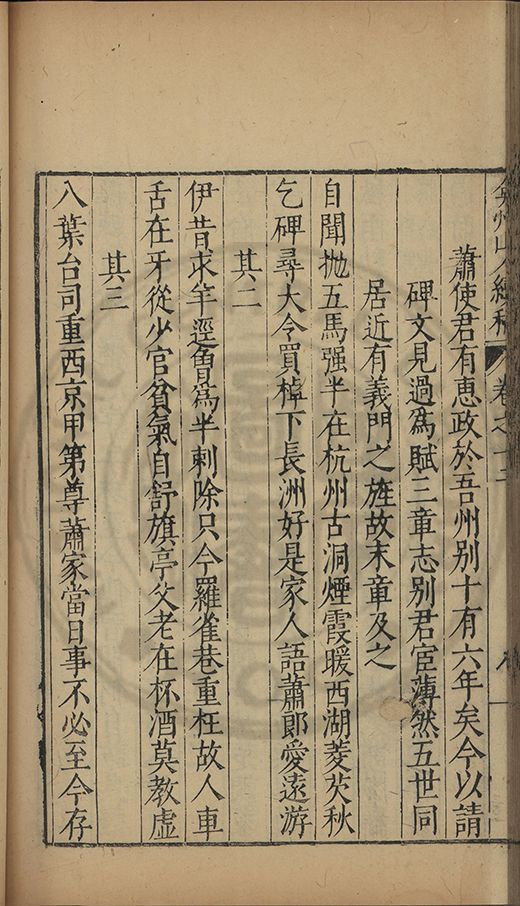 弇州山人續稿 卷之十三
蕭使君有惠政於吾州別十有六年矣今以請
碑文見過為賦三章志別君宦薄然五世同
居近有義門之旌故末章及之
自聞拋五馬强半在杭州古洞煙霞暖西湖菱芡秋
乞碑尋大令買棹下長洲好是家人語蕭郎愛遠游
其二
伊昔求竿逕魯為半剌除只今羅雀巷重枉故人車
舌在牙從少官貧氣自舒旗亭父老在杯酒莫教虛
其三
入葉台司重西京甲第尊蕭家當日事不必至今存